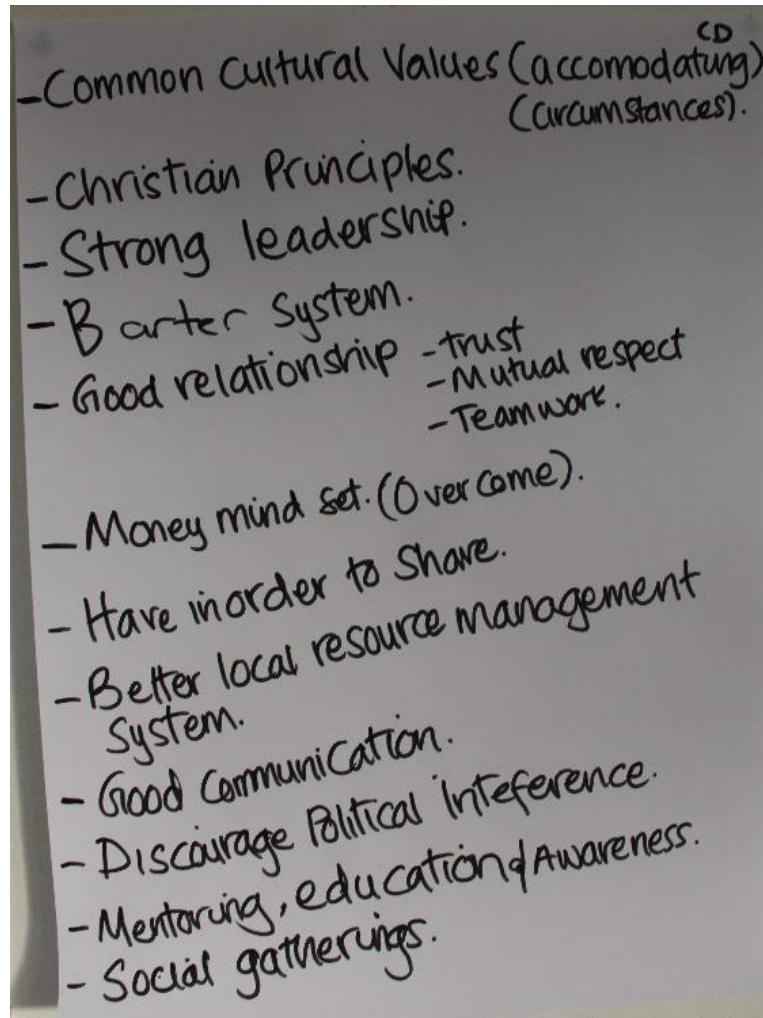 CD
- Common Cultural Values (accomodating)
(circumstances).
- Christian Principles.
- Strong leadership.
- Barter System.
- Good relationship - trust
- Mutual respect
- Teamwork.
- Money mind set. (Overcome).
- Have inorder to Share.
- Better local resource management
System.
- Good Communication.
- Discourage Political Inteference.
- Mentoring, education & Awareness.
- Social gatherings.